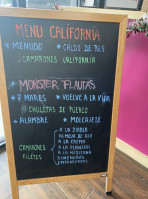 MENU CALIFORNIA
* MENUDO * CALDO DE RES
CAMARONES CALIFORNIA
MONSTER FLAUTAS
* 7 MARES * VUELVE A LA VIDA
* CHULETAS DE PUERCO
* ALAMBRE * MOLCAJETE
A LA DIABLA
AL MOJO DE AJO
A LA CREMA
CAMARONES
FILETES
A LA PLANCHA
A LA MEXICANA
RANCHEROS
EMPANIZADOS